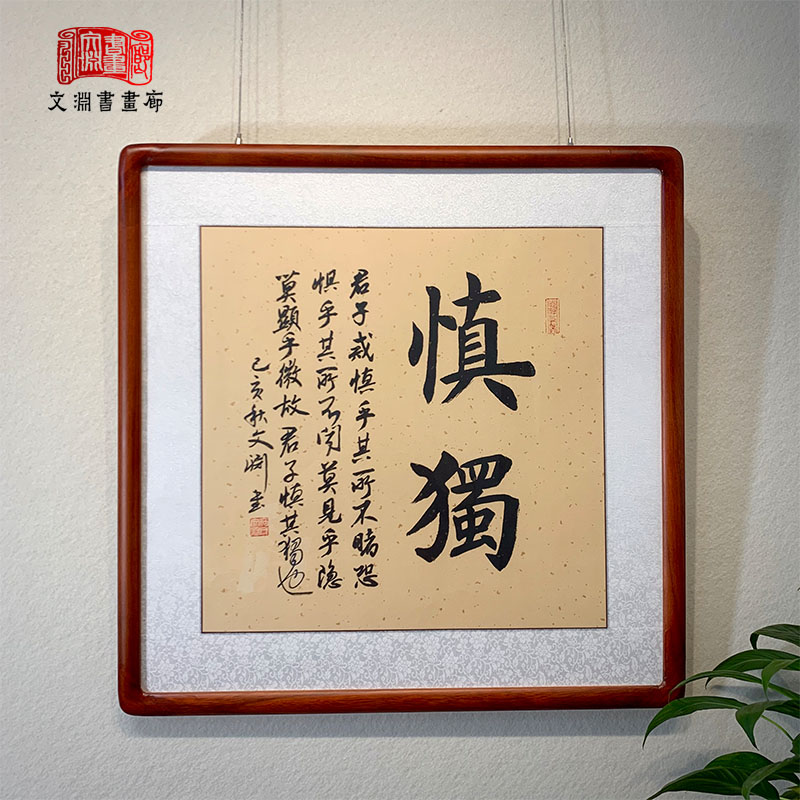 文淵書畫廊
慎獨
君子戒慎乎其所不睹恐
惧乎其所不闻莫見乎隐
莫顯乎微故君子慎其獨也
己亥秋文渊书